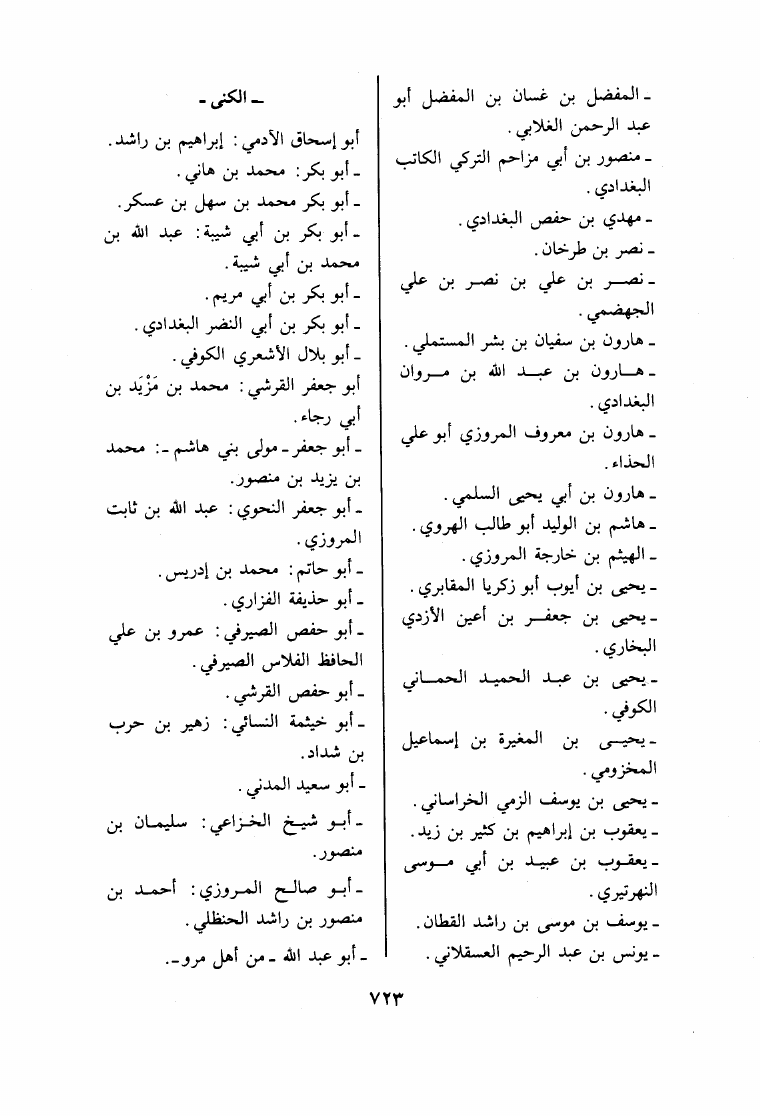 ـ المفضل بن غسان بن المفضل أبو
عبد الرحمن الغلابي.
ـ منصور بن أبي مزاحم التركي الكاتب
البغدادي.
ـ مهدي بن حفص البغدادي.
ـ نصر بن طرخان.
ـ نصـر بن علي بن نصر بن علي
الجهضمي.
ـ هارون بن سفيان بن بشر المستملي.
ـ هـارون بن عبـد الله بن مـروان
البغدادي.
ـ هارون بن معروف المروزي أبو علي
الحذاء.
ـ هارون بن أبي يحيى السلمي.
ـ هاشم بن الوليد أبو طالب الهروي.
ـ الهيثم بن خارجة المروزي.
ـ يحيى بن أيوب أبو زكريا المقابري.
ـ يحيى بن جعفـر بن أعين الأزدي
البخاري.
ـ يحيى بن عبـد الحميـد الحمـاني
الكوفي.
ـ يحيـى بن المغيرة بن إسماعيل
المخزومي.
ـ يحيى بن يوسف الزمي الخراساني.
ـ يعقوب بن إبراهيم بن كثير بن زيد.
ـ يعقـوب بن عبيـد بن أبي مـوسى
النهرتيري.
ـ يوسف بن موسى بن راشد القطان.
ـ يونس بن عبد الرحيم العسقلاني.
ـ الكنى ـ
أبو إسحاق الآدمي: إبراهيم بن راشد.
ـ أبو بكر: محمد بن هاني.
ـ أبو بكر محمد بن سهل بن عسكر.
ـ أبو بكر بن أبي شيبة: عبد الله بن
محمد بن أبي شيبة.
ـ أبو بكر بن أبي مريم.
ـ أبو بكر بن أبي النضر البغدادي.
ـ أبو بلال الأشعري الكوفي.
أبو جعفر القرشي: محمد بن مَزْيَد بن
أبي رجاء.
ـ أبو جعفر ـ مولى بني هاشم ـ: محمد
بن يزيد بن منصور.
ـ أبو جعفر النحوي: عبد الله بن ثابت
المروزي.
ـ أبو حاتم: محمد بن إدريس.
ـ أبو حذيفة الفزاري.
ـ أبو حفص الصيرفي: عمرو بن علي
الحافظ الفلاس الصيرفي.
ـ أبو حفص القرشي.
ـ أبو خيثمة النسائي: زهير بن حرب
بن شداد.
ـ أبو سعيد المدني.
ـ أبـو شيـخ الخـزاعي: سليمـان بن
منصور.
ـ أبـو صالـح المـروزي: أحمـد بن
منصور بن راشد الحنظلي.
ـ أبو عبد الله ـ من أهل مرو ـ.
٧٢٣